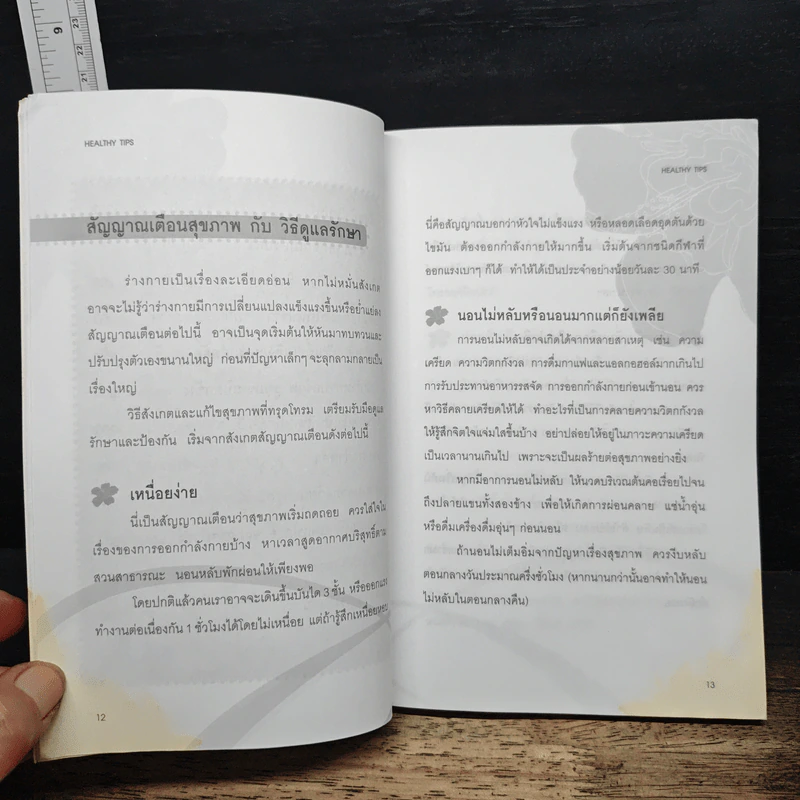 9
23
22
21
HEALTHY TIPS
สัญญาณเตือนสุขภาพ กับ วิธีดูแลรักษา
ร่างกายเป็นเรื่องละเอียดอ่อน หากไม่หมั่นสังเกต
อาจจะไม่รู้ว่าร่างกายมีการเปลี่ยนแปลงแข็งแรงขึ้นหรือย่ำแย่ลง
สัญญาณเตือนต่อไปนี้ อาจเป็นจุดเริ่มต้นให้หันมาทบทวนและ
ปรับปรุงตัวเองขนานใหญ่ ก่อนที่ปัญหาเล็กๆ จะลุกลามกลายเป็น
เรื่องใหญ่
วิธีสังเกตและแก้ไขสุขภาพที่ทรุดโทรม เตรียมรับมือดูแล
รักษาและป้องกัน เริ่มจากสังเกตสัญญาณเตือนดังต่อไปนี้
เหนื่อยง่าย
นี่เป็นสัญญาณเตือนว่าสุขภาพเริ่มถดถอย ควรใส่ใจใน
เรื่องของการออกกำลังกายบ้าง หาเวลาสูดอากาศบริสุทธิ์ตาม
สวนสาธารณะ นอนหลับพักผ่อนให้เพียงพอ
โดยปกติแล้วคนเราอาจจะเดินขึ้นบันได 3 ชั้น หรือออกแรง
ทำงานต่อเนื่องกัน 1 ชั่วโมงได้โดยไม่เหนื่อย แต่ถ้ารู้สึกเหนื่อยหอบ
12
HEALTHY TIPS
นี่คือสัญญาณบอกว่าหัวใจไม่แข็งแรง หรือหลอดเลือดอุดตันด้วย
ไขมัน ต้องออกกำลังกายให้มากขึ้น เริ่มต้นจากชนิดกีฬาที่
ออกแรงเบาๆ ก็ได้ ทำให้ได้เป็นประจำอย่างน้อยวันละ 30 นาที
นอนไม่หลับหรือนอนมากแต่ก็ยังเพลีย
การนอนไม่หลับอาจเกิดได้จากหลายสาเหตุ เช่น ความ
เครียด ความวิตกกังวล การดื่มกาแฟและแอลกอฮอล์มากเกินไป
การรับประทานอาหารรสจัด การออกกำลังกายก่อนเข้านอน ควร
หาวิธีคลายเครียดให้ได้ ทำอะไรที่เป็นการคลายความวิตกกังวล
ให้รู้สึกจิตใจแจ่มใสขึ้นบ้าง อย่าปล่อยให้อยู่ในภาวะความเครียด
เป็นเวลานานเกินไป เพราะจะเป็นผลร้ายต่อสุขภาพอย่างยิ่ง
หากมีอาการนอนไม่หลับ ให้นวดบริเวณต้นคอเรื่อยไปจน
ถึงปลายแขนทั้งสองข้าง เพื่อให้เกิดการผ่อนคลาย แช่น้ำอุ่น
หรือดื่มเครื่องดื่มอุ่นๆ ก่อนนอน
ถ้านอนไม่เต็มอิ่มจากปัญหาเรื่องสุขภาพ ควรงีบหลับ
ตอนกลางวันประมาณครึ่งชั่วโมง (หากนานกว่านั้นอาจทำให้นอน
ไม่หลับในตอนกลางคืน)
13